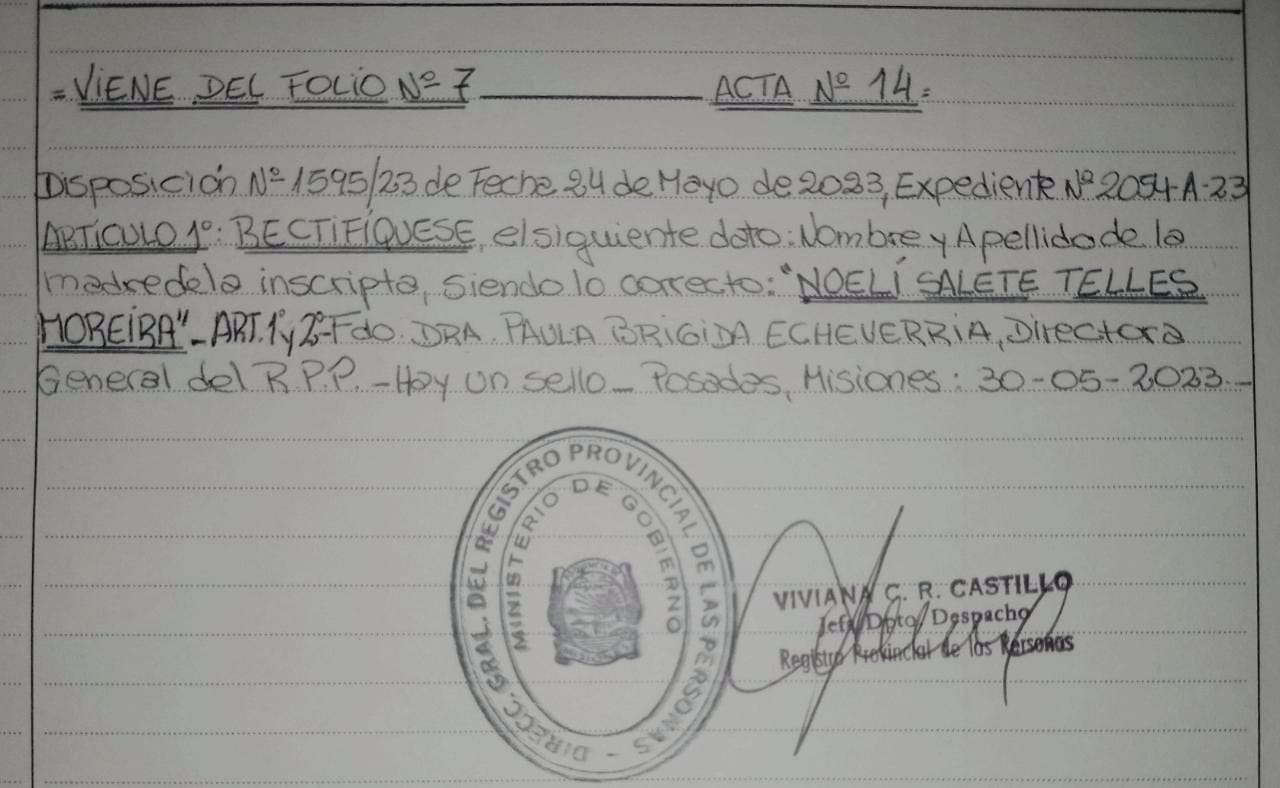 = VIENE DEL FOLIO Nº 7 ACTA Nº 14 =
Disposición Nº 1595/23 de Fecha 24 de Mayo de 2023, Expediente Nº 2054-A-23
ARTÍCULO 1º: RECTIFÍQUESE, el siguiente dato: Nombre y Apellido de la
madre de la inscripta, siendo lo correcto: "NOELÍ SALETE TELLES
MOREIRA" - ART. 1º y 2º - Fdo. DRA. PAULA BRIGIDA ECHEVERRIA, Directora
General del R.P.P. - Hay un sello - Posadas, Misiones: 30-05-2023. -
DIRECC. GRAL. DEL REGISTRO PROVINCIAL DE LAS PERSONAS -
MINISTERIO DE GOBIERNO
VIVIANA C. R. CASTILLO
Jefa Dpto/ Despacho
Registro Provincial de las Personas